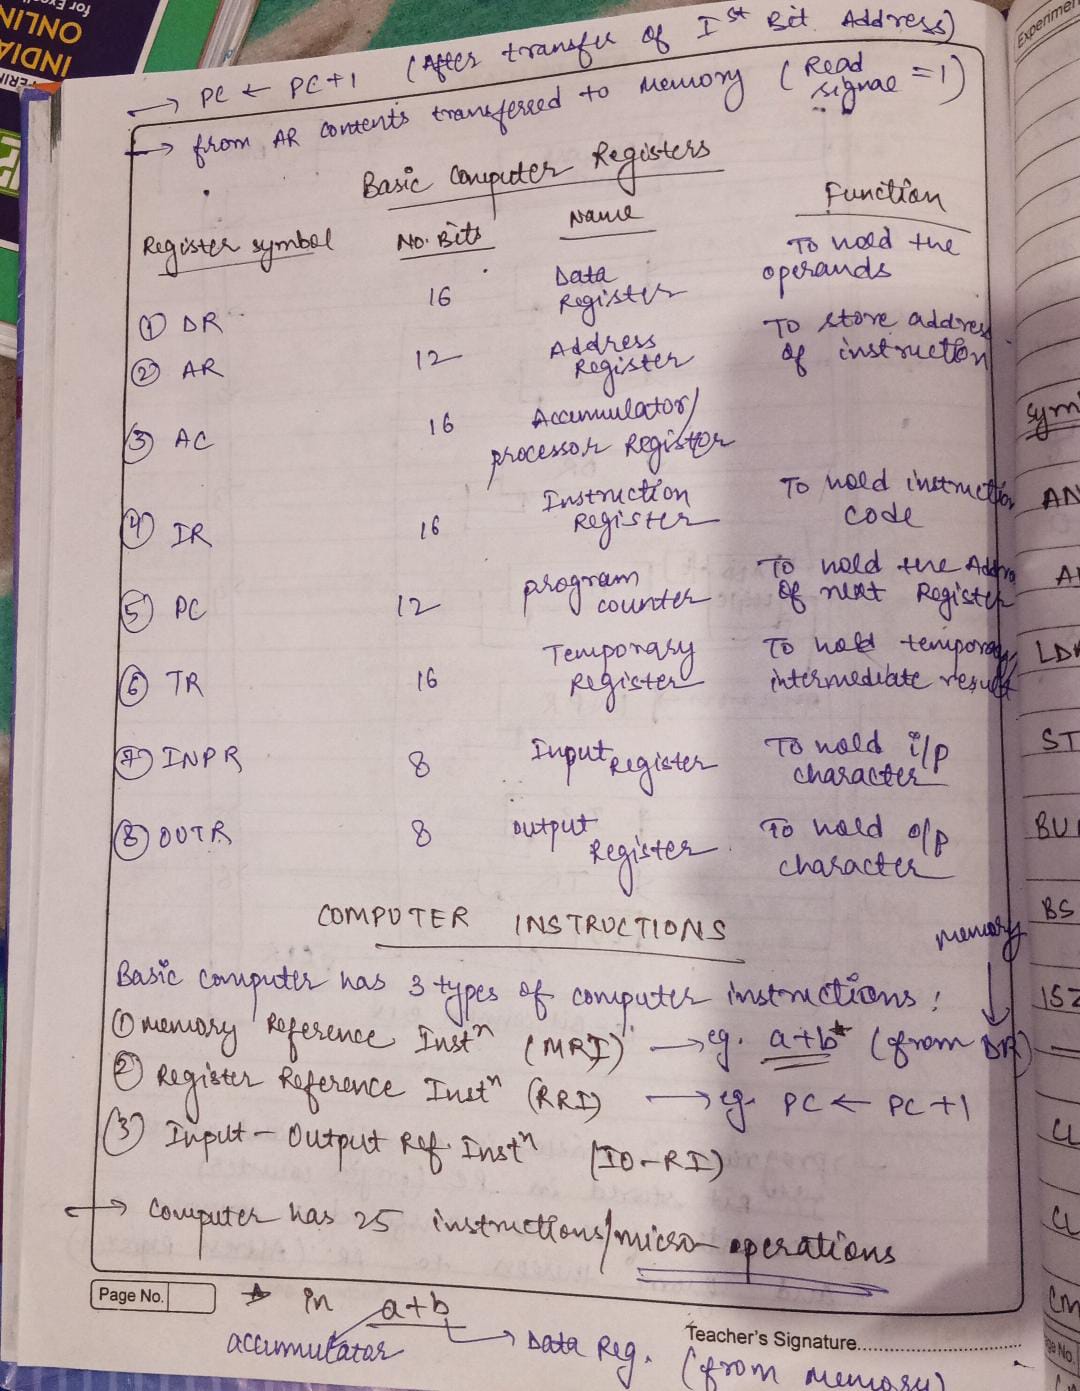 for Excell
ONLIN
INDIA
→ PC ← PC+1 (After transfer of Ist Bit Address)
→ from AR contents transferred to memory (Read signal = 1)
Basic Computer Registers
Register symbol No. Bits Name Function
① DR 16 Data Register To hold the operands
② AR 12 Address Register To store address of instruction
③ AC 16 Accumulator/ processor Register
④ IR 16 Instruction Register To hold instruction code
⑤ PC 12 program counter To hold the Addre of next Register
⑥ TR 16 Temporary Register To hold temporary intermediate result
⑦ INPR 8 Input Register To hold i/p character
⑧ OUTR 8 output Register To hold o/p character
COMPUTER INSTRUCTIONS
memory
Basic computer has 3 types of computer instructions :
① memory Reference Instⁿ (MRI) → eg. a+b* (from DR)
② Register Reference Instⁿ (RRI) → eg. PC ← PC+1
③ Input - Output Ref. Instⁿ (IO-RI)
→ Computer has 25 instructions/micro-operations
Page No.
* in a+b
accumulator → Data Reg. (from memory)
Teacher's Signature
Experimen
Sym
AN
LD
ST
BU
BS
ISZ
CL
CM